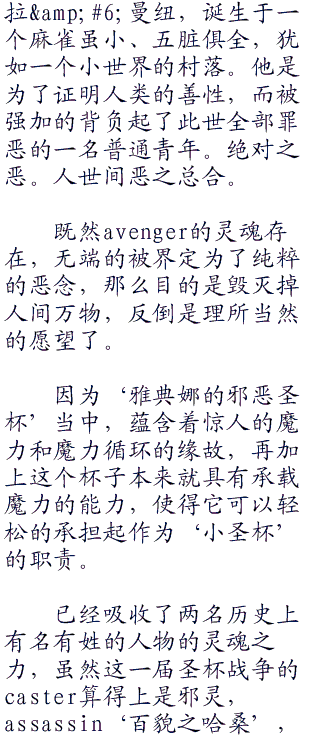 拉&amp; #6; 曼纽，诞生于一
个麻雀虽小、五脏俱全，犹
如一个小世界的村落。他是
为了证明人类的善性，而被
强加的背负起了此世全部罪
恶的一名普通青年。绝对之
恶。人世间恶之总合。
既然avenger的灵魂存
在，无端的被界定为了纯粹
的恶念，那么目的是毁灭掉
人间万物，反倒是理所当然
的愿望了。
因为‘雅典娜的邪恶圣
杯’当中，蕴含着惊人的魔
力和魔力循环的缘故，再加
上这个杯子本来就具有承载
魔力的能力，使得它可以轻
松的承担起作为‘小圣杯’
的职责。
已经吸收了两名历史上
有名有姓的人物的灵魂之
力，虽然这一届圣杯战争的
caster算得上是邪灵，
assassin‘百貌之哈桑’，